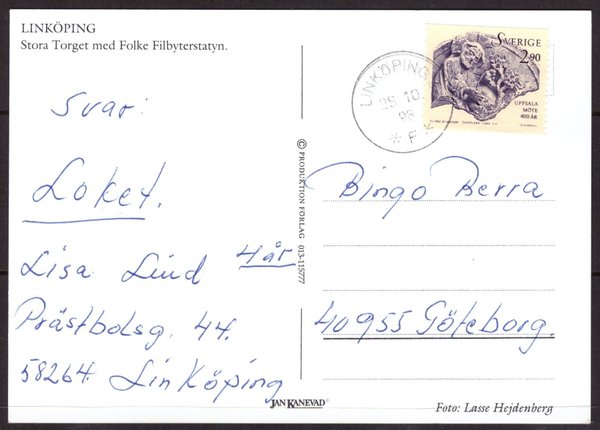 LINKÖPING
Stora Torget med Folke Filbyterstatyn.
Svar:
Loket.
Lisa Lind 4 år
Prästbolsg. 44.
58264. Linköping
© PRODUKTION FÖRLAG 013-115777
JAN KANEVAD
LINKÖPING
29.10.
93
* F *
SVERIGE
2.90
UPPSALA
MÖTE
400 ÅR
Bingo Berra
40955 Göteborg.
Foto: Lasse Hejdenberg